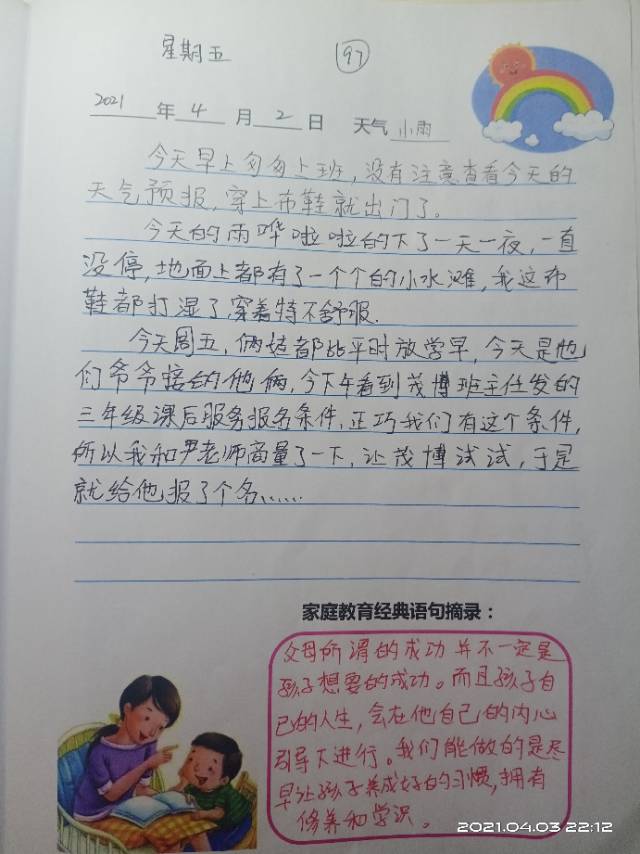 星期五 97
2021 年 4 月 2 日 天气 小雨
今天早上匆匆上班，没有注意查看今天的
天气预报，穿上布鞋就出门了。
今天的雨哗啦啦的下了一天一夜，一直
没停，地面上都有了一个个的小水滩，我这布
鞋都打湿了，穿着特不舒服.
今天周五，俩娃都比平时放学早，今天是他
们爷爷接的他俩，今下午看到茂博班主任发的
三年级课后服务报名条件，正巧我们有这个条件，
所以我和严老师商量了一下，让茂博试试，于是
就给他报了个名……
家庭教育经典语句摘录：
父母所谓的成功并不一定是
孩子想要的成功。而且孩子自
己的人生，会在他自己的内心
引导下进行。我们能做的是尽
早让孩子养成好的习惯，拥有
修养和学识。
2021.04.03 22:12